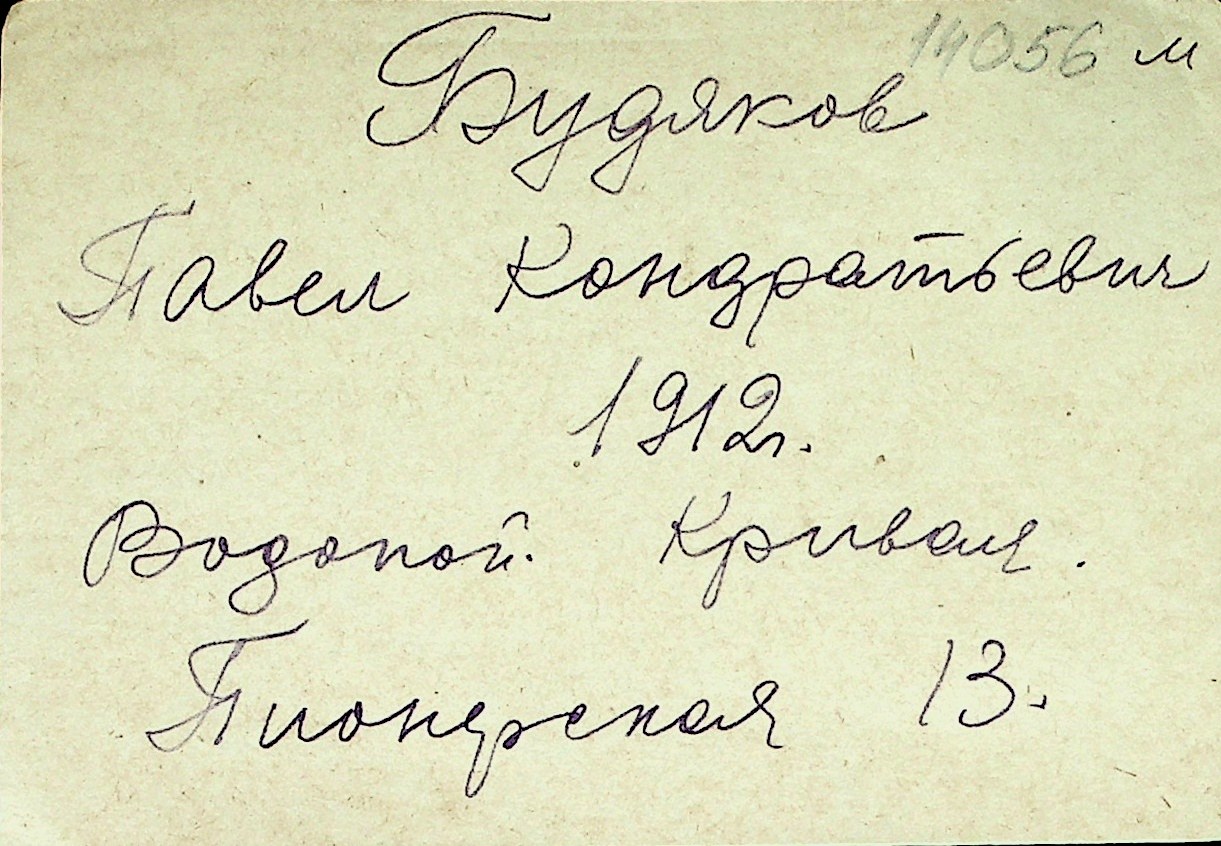 14056 м
Будяков
Павел Кондратьевич
1912г.
Водопой. Кривая.
Пионерская 13.